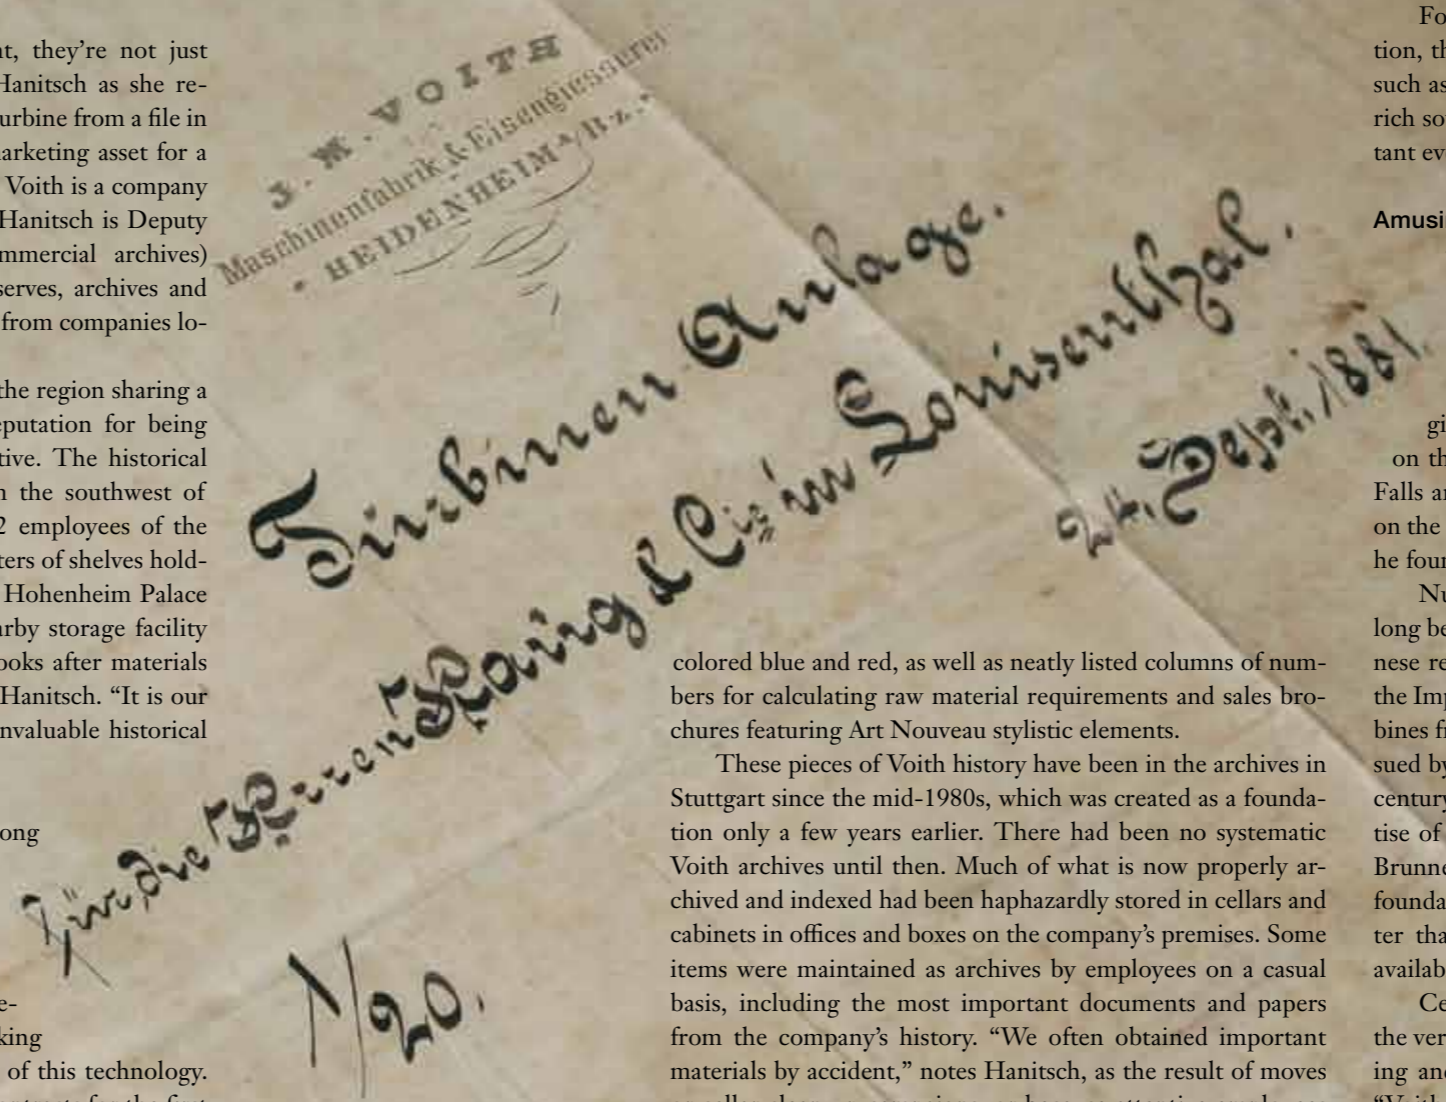 nt, they're not just
Hanitsch as she re-
turbine from a file in
marketing asset for a
Voith is a company
Hanitsch is Deputy
mmercial archives)
serves, archives and
from companies lo-
the region sharing a
eputation for being
tive. The historical
n the southwest of
2 employees of the
ters of shelves hold-
Hohenheim Palace
arby storage facility
ooks after materials
Hanitsch. “It is our
nvaluable historical
ong
e-
king
of this technology.
J. M. VOITH
Maschinenfabrik & Eisengiesserei
HEIDENHEIM a/Brz.
Turbinen Anlage.
für die Herren Haug & Cie in Louisenthal.
24. Sept. 1881.
1/20.
colored blue and red, as well as neatly listed columns of num-
bers for calculating raw material requirements and sales bro-
chures featuring Art Nouveau stylistic elements.
These pieces of Voith history have been in the archives in
Stuttgart since the mid-1980s, which was created as a founda-
tion only a few years earlier. There had been no systematic
Voith archives until then. Much of what is now properly ar-
chived and indexed had been haphazardly stored in cellars and
cabinets in offices and boxes on the company’s premises. Some
items were maintained as archives by employees on a casual
basis, including the most important documents and papers
from the company’s history. “We often obtained important
materials by accident,” notes Hanitsch, as the result of moves
Fo
tion, th
such as
rich so
tant ev
Amusi
gi
on th
Falls a
on the
he foun
Nu
long be
nese re
the Imp
bines f
sued by
century
tise of
Brunne
founda
ter tha
availab
Ce
the ver
ing and